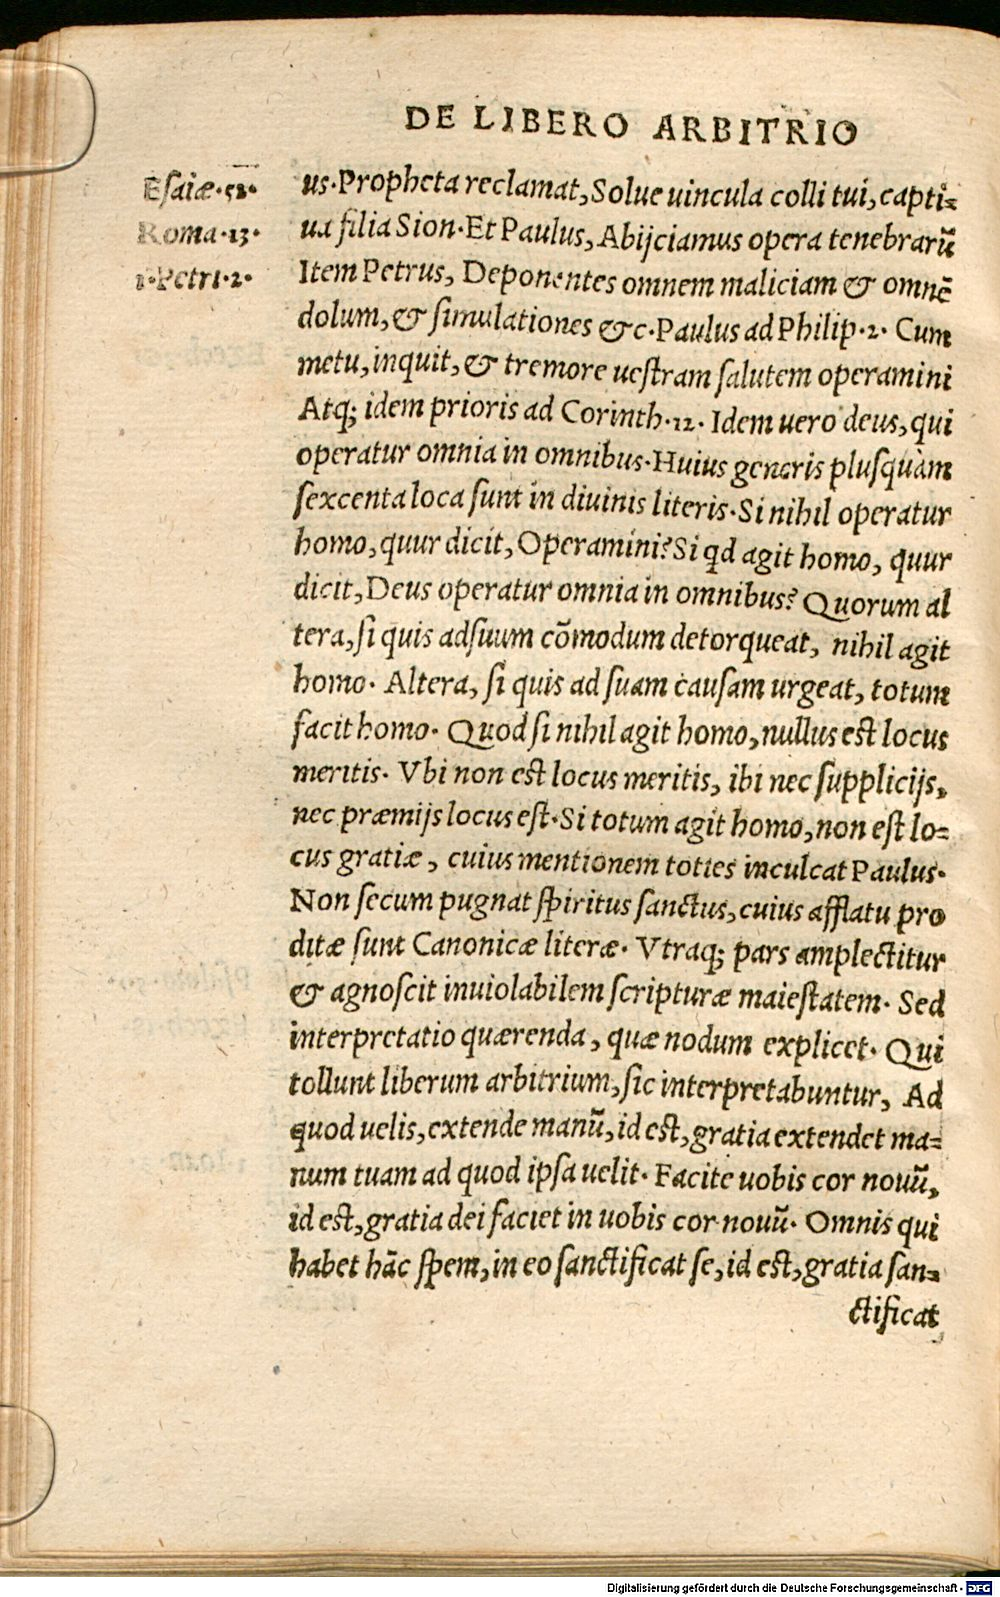 DE LIBERO ARBITRIO
Esaiæ·52·
Roma·13·
1·Petri·2·
us·Propheta reclamat, Solue uincula colli tui, capti=
ua filia Sion·Et Paulus, Abijciamus opera tenebrarū
Item Petrus, Deponentes omnem maliciam & omnē
dolum, & simulationes &c·Paulus ad Philip·2· Cum
metu, inquit, & tremore uestram salutem operamini
Atq; idem prioris ad Corinth·12· Idem uero deus, qui
operatur omnia in omnibus·Huius generis plusquàm
sexcenta loca sunt in diuinis literis·Si nihil operatur
homo, quur dicit, Operamini? Si qd agit homo, quur
dicit, Deus operatur omnia in omnibus? Quorum al
tera, si quis ad suum cōmodum detorqueat, nihil agit
homo· Altera, si quis ad suam causam urgeat, totum
facit homo· Quod si nihil agit homo, nullus est locus
meritis· Vbi non est locus meritis, ibi nec supplicijs,
nec præmijs locus est·Si totum agit homo, non est lo=
cus gratiæ, cuius mentionem toties inculcat Paulus·
Non secum pugnat spiritus sanctus, cuius afflatu pro
ditæ sunt Canonicæ literæ· Vtraq; pars amplectitur
& agnoscit inuiolabilem scripturæ maiestatem· Sed
interpretatio quærenda, quæ nodum explicet· Qui
tollunt liberum arbitrium, sic interpretabuntur, Ad
quod uelis, extende manū, id est, gratia extendet ma=
num tuam ad quod ipsa uelit· Facite uobis cor nouū,
id est, gratia dei faciet in uobis cor nouū· Omnis qui
habet hāc spem, in eo sanctificat se, id est, gratia san=
ctificat
Digitalisierung gefördert durch die Deutsche Forschungsgemeinschaft - DFG